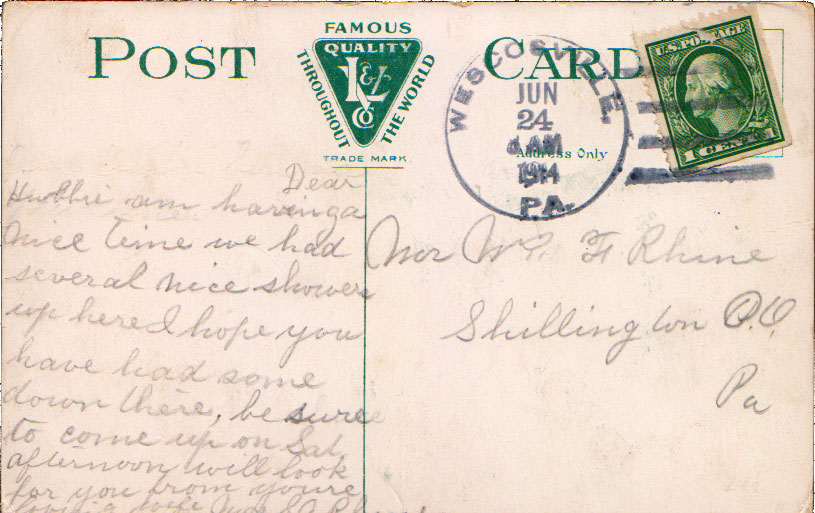 FAMOUS
POST
QUALITY
K & L Co
THROUGHOUT THE WORLD
TRADE MARK.
CARD
Address Only
WESCOSVILLE.
JUN
24
AM
1914
PA.
U.S. POSTAGE
1 CENT 1
Dear
Hubbie am having a
nice time we had
several nice showers
up here I hope you
have had some
down there, be suree
to come up on Sat
afternoon will look
for you from youre
loving wife Mrs
Mr F Rhine
Shillington P.O.
Pa